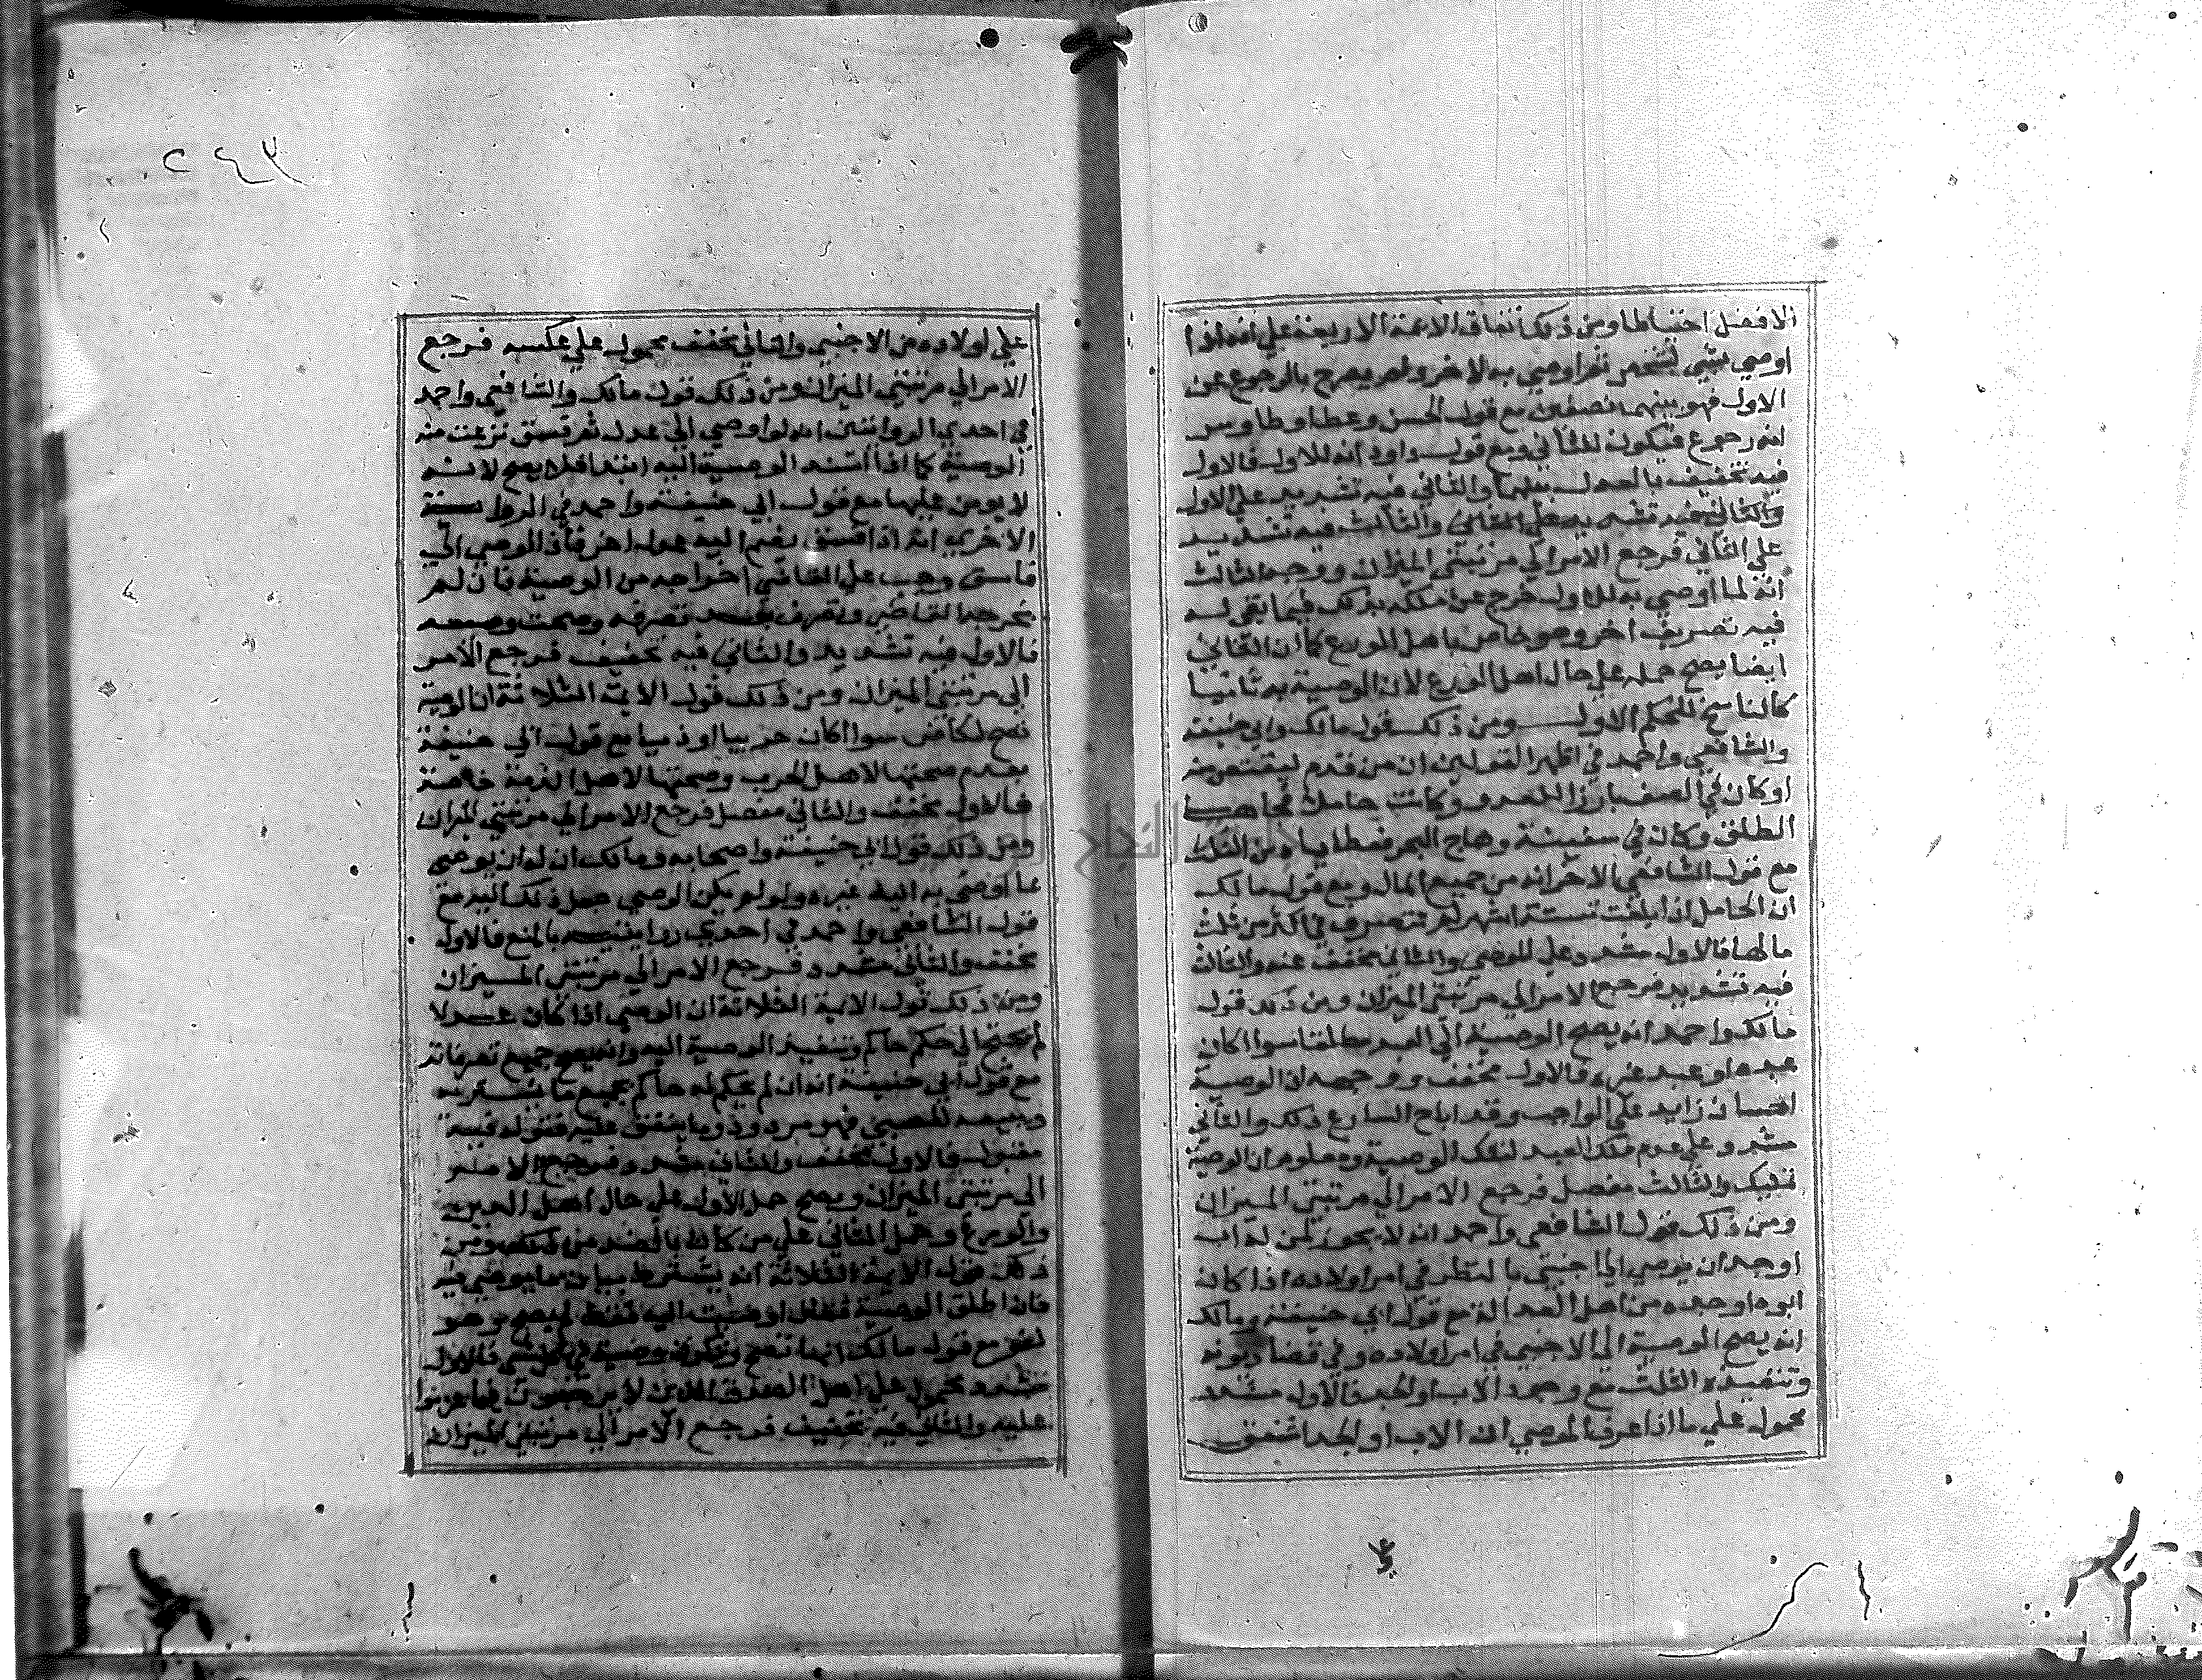 الافضل احتياطا ومن ذلك اتفاق الايمة الاربعة علي انه اذا
اوصي بشي لشخص ثم اوصي به لاخر ولم يصرح بالرجوع عن
الاول فهو بينهما نصفين مع قول الحسن وعطا وطاوس
انه رجوع فيكون للثاني ومع قول داود انه للاول فالاول
فيه تخفيف بالعدل بينهما والثاني فيه تشديد علي الاول
والثالث فيه تشديد
علي الثاني فرجع الامر الي مرتبتي الميزان ووجه الثالث
انه لما اوصي به للاول خرج عن ملكه بذلك فيما بقي له
فيه تصريف اخر وهو خاص باهل الورع كما ان الثاني
ايضا يصح حمله علي حال اهل الورع لان الوصية به ثانيا
كالناسخ للحكم الاول ومن ذلك قول مالك وابي حنيفة
والشافعي واحمد في اظهر القولين ان من قدم ليقتص منه
او كان في الصف بارزا للعدو وكانت حاملا فجاها
الطلق وكان في سفينة وهاج البحر فعطاياه من الثلث
مع قول الشافعي الاخر انه من جميع المال ومع قول مالك
ان الحامل اذا بلغت ستة اشهر لم تتصرف في اكثر من ثلث
مالها فالاول مشدد علي الموصي والثاني مخفف عنه والثالث
فيه تشديد فرجع الامر الي مرتبتي الميزان ومن ذلك قول
مالك واحمد انه يصح الوصية الي العبد مطلقا سوا كان
عبده او عبد غيره فالاول مخفف ووجهه ان الوصية
احسان زايد علي الواجب وقد اباح الشارع ذلك والثاني
مشدد علي عدم ملك العبد لتلك الوصية ومعلوم ان الوصية
تمليك والثالث مفصل فرجع الامر الي مرتبتي الميزان
ومن ذلك قول الشافعي واحمد انه لا يجوز لمن له اب
او جد ان يوصي الي اجنبي بالنظر في امر اولاده اذا كان
ابوه او جده من اهل العدالة مع قول ابي حنيفة ومالك
انه يصح الوصية الي الاجنبي في امر اولاده وفي قضا ديونه
وتنفيذه الثلث مع وجود الاب او الجد فالاول مشدد
محمول علي ما اذا عرف الموصي ان الاب او الجد اشفق
علي
علي اولاده من الاجنبي والثاني مخفف محمول علي عكسه فرجع
الامر الي مرتبتي الميزان ومن ذلك قول مالك والشافعي واحمد
في احدي الروايتين انه لو اوصي الي عدل ثم فسق نزعت منه
الوصية كما اذا اسند الوصية اليه ابتدا فلا يصح لانه
لا يومن عليها مع قول ابي حنيفة واحمد في الرواية
الاخري انه اذا فسق يضم اليه عدل اخر فاذا اوصي الي
فاسق وجب علي القاضي اخراجه من الوصية فان لم
يخرجه القاضي وتصرف نفذ تصرفه وصحت وصيته
فالاول فيه تشديد والثاني فيه تخفيف فرجع الامر
الي مرتبتي الميزان ومن ذلك قول الايمة الثلاثة ان الوصية
تصح لكافر سوا اكان حربيا او ذميا مع قول ابي حنيفة
بعدم صحتها لاهل الحرب وصحتها لاهل الذمة خاصة
فالاول مخفف والثاني مفصل فرجع الامر الي مرتبتي الميزان
ومن ذلك قول ابي حنيفة واصحابه ومالك ان له ان يوصي
بما اوصي به اليه غيره ولو لم يكن الموصي جعل ذلك اليه مع
قول الشافعي واحمد في احدي روايتيه بالمنع فالاول
مخفف والثاني مشدد فرجع الامر الي مرتبتي الميزان
ومن ذلك قول الايمة الثلاثة ان الوصي اذا كان عدلا
لم يحتج الي حكم حاكم وتنفيذ الوصية اليه وانه يصح جميع تصرفاته
مع قول ابي حنيفة انه ان لم يحكم له حاكم فجميع ما يشتريه
ويبيعه للصبي فهو مردود وما ينفق عليه فقوله فيه
مقبول فالاول مخفف والثاني مشدد فرجع الامر
الي مرتبتي الميزان ويصح حمل الاول علي حال اهل الدين
والورع وحمل الثاني علي من كان بالضد من ذلك ومن
ذلك قول الايمة الثلاثة انه يشترط بيان ما يوصي فيه
فاذا اطلق الوصية فقال اوصيت اليك فقط لم يصح وهو
لغو مع قول مالك انها تصح وتكون وصية في كل شي فالاول
مشدد محمول علي اهل الصدق الذين لا
عليه والثاني فيه تخفيف فرجع الامر الي مرتبتي الميزان